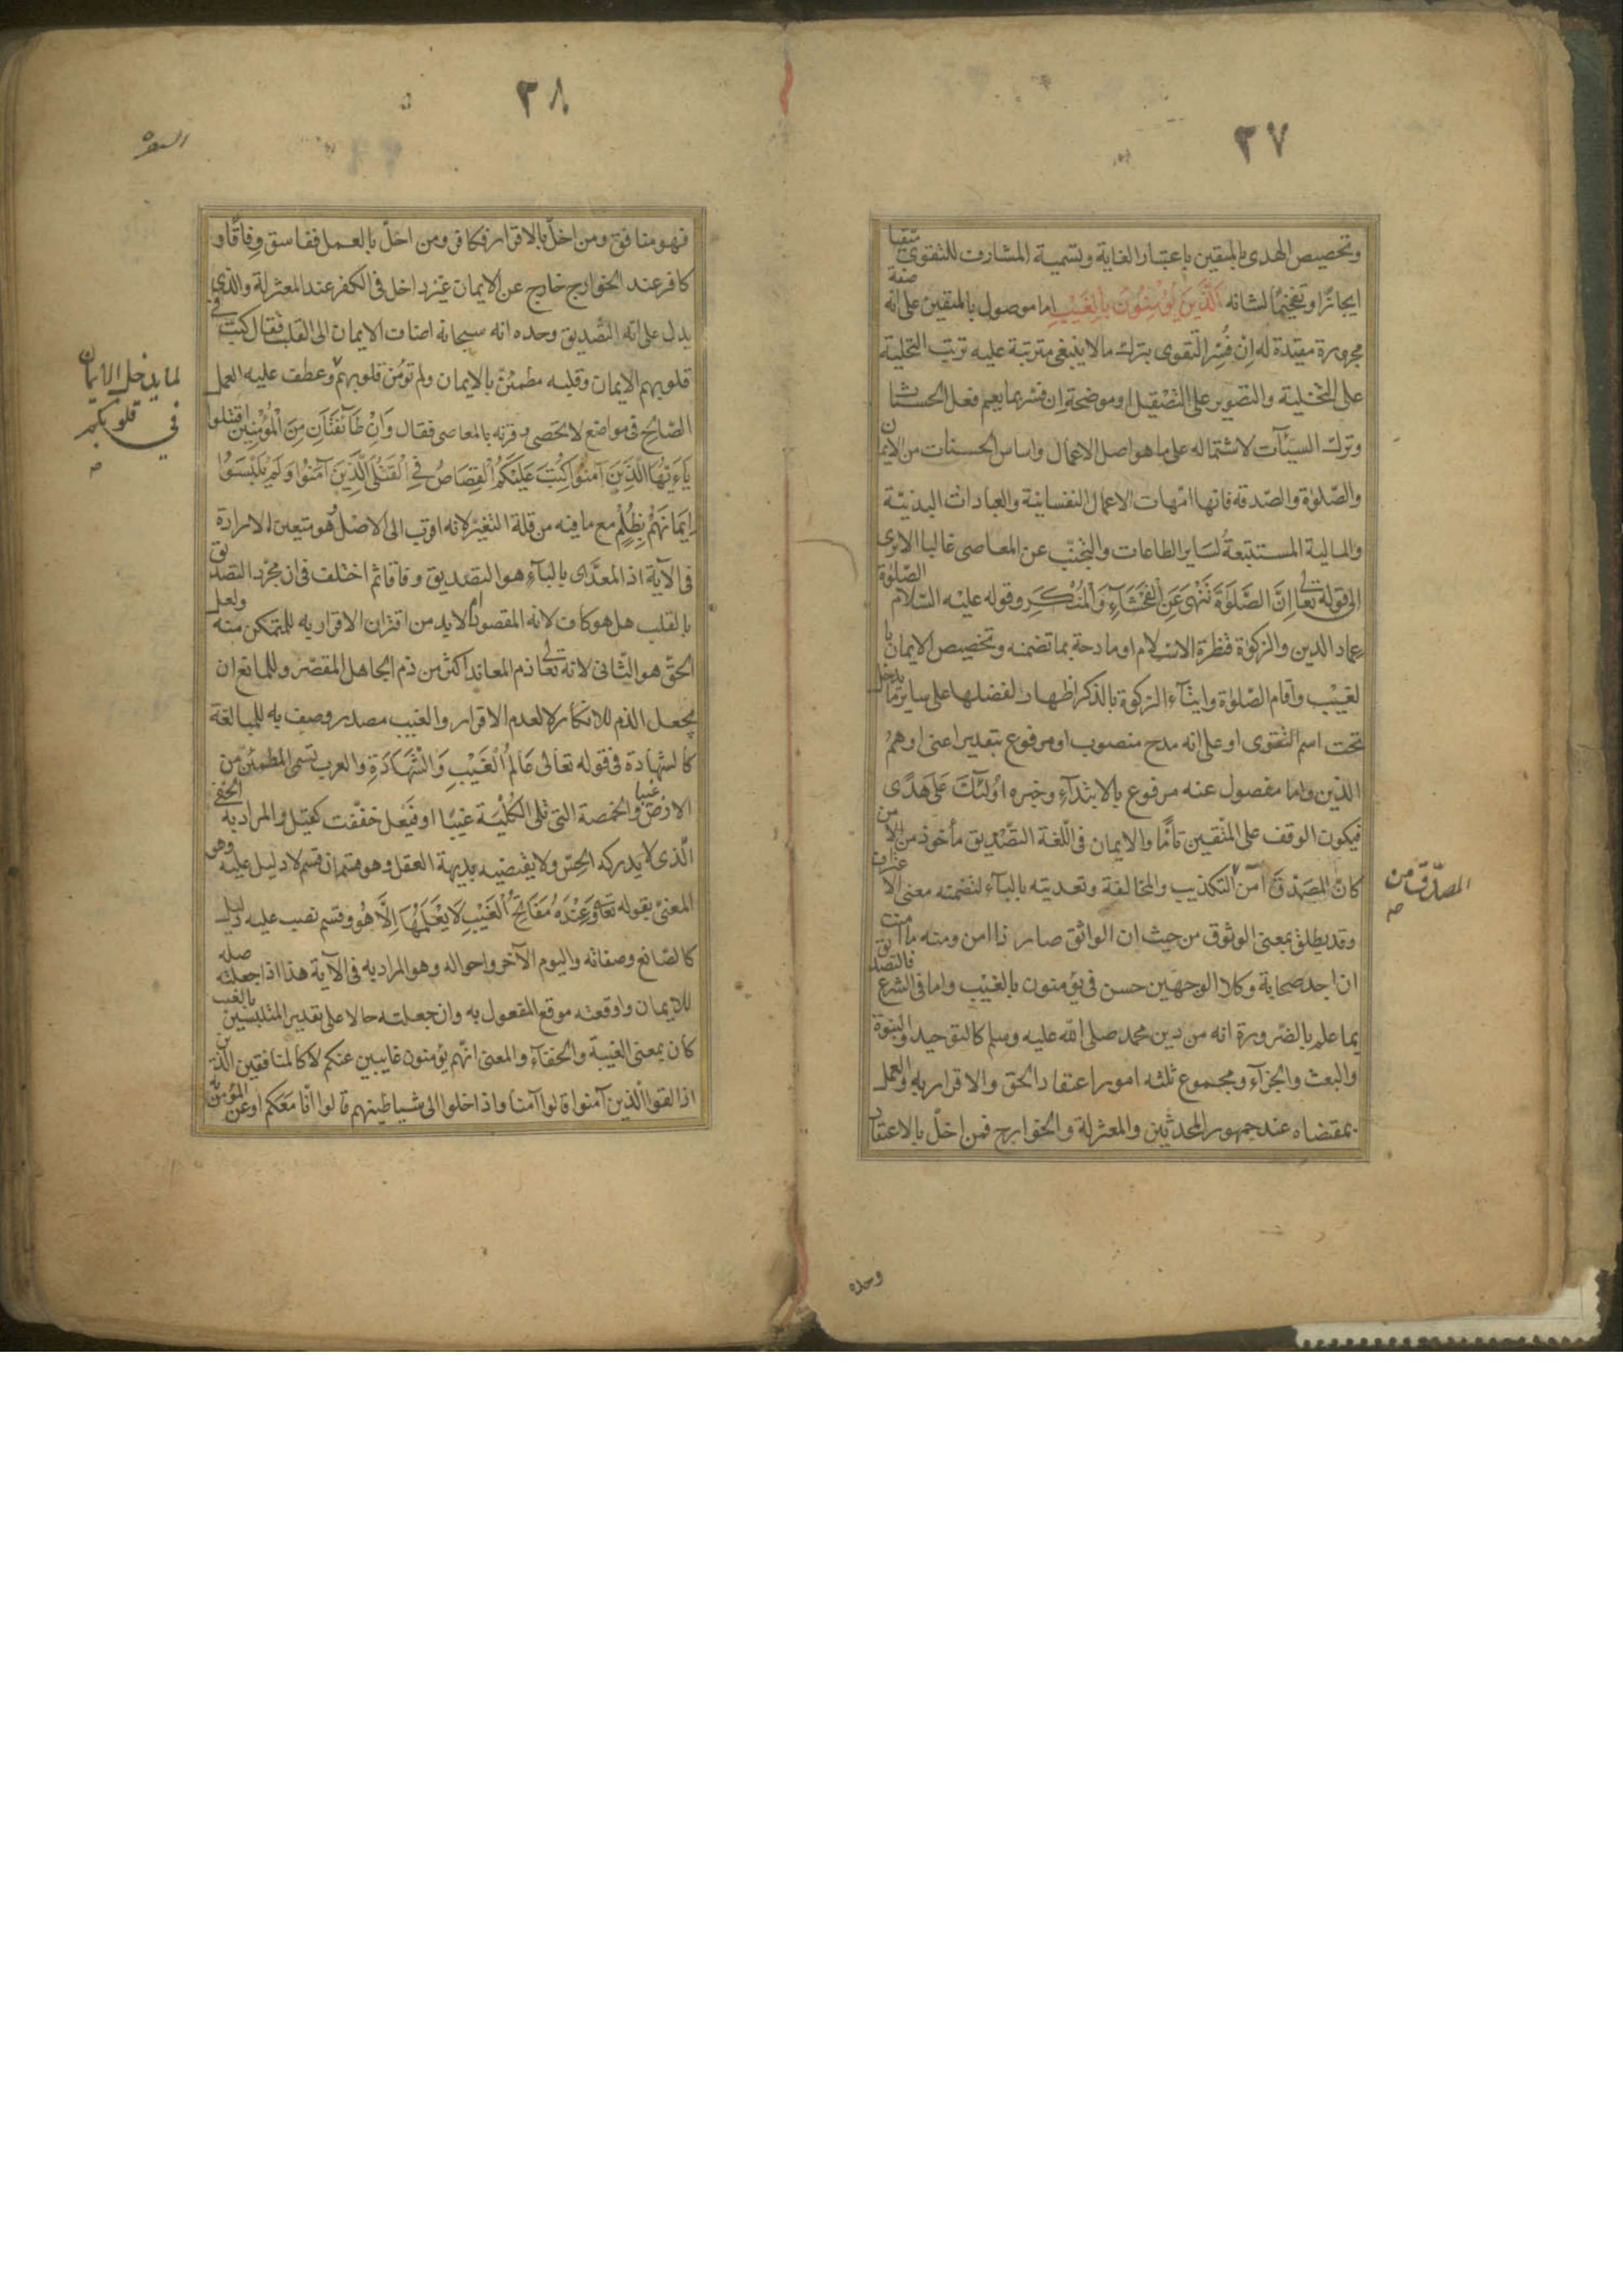 ٢٧
وتخصيص الهدى بالمتقين باعتبار الغاية وتسمية المشارف للتقوى متقيا
ايجازا وتفخيما لشانه الَّذِينَ يُؤْمِنُونَ بِالْغَيْبِ اما موصول بالمتقين على انه صفة
مجرورة مقيدة له ان فُسِّر التقوى بترك مالاينبغى مترتبة عليه ترتب التحلية
على التخلية والتصوير على التصقيل او موضحة ان فسر بما يعم فعل الحسنات
وترك السيّآت لاشتماله على ما هو اصل الاعمال واساس الحسنات من الايمان
والصّلوة والصّدقة فانها امّهات الاعمال النفسانية والعبادات البدنيّة
والمالية المستتبعة لساير الطاعات والتجنّب عن المعاصى غالبا الاترى
الى قوله تعا اِنَّ الصَّلَوةَ تَنْهَى عَنِ الْفَحْشَآءِ وَالْمُنْكَرِ وقوله عليه السّلام الصّلوة
عماد الدين والزكوة قنطرة الاسلام او مادحة بما تضمنه وتخصيص الايمان با
لغيب واقام الصّلوة وايتاء الزكوة بالذكر اظهار لفضلها على ساير ما يدخل
تحت اسم التقوى او على انه مدح منصوب او مرفوع بتقدير اعنى او همُ
الذين واما مفصول عنه مرفوع بالابتدآءِ وخبره اُولئِكَ عَلَى هُدًى
فيكون الوقف على المتّقين تامًّا والايمان فى اللغة التصّديق مأخوذ من الا من
كانّ المصَدِّقَ آمَنَ التكذيب والمخالفة وتعديته بالبآء لتضمنه معنى الاعتراف
المصدّق من
صح
وقد يطلق بمعنى الوثوق من حيث ان الواثق صار ذا امن ومنه ما امنت
ان اجد صحابة وكلا الوجهين حسن فى يؤمنون بالغيب واما فى الشرع فالتصديق
بما علم بالضرورة انه من دين محمد صلى الله عليه وسلم كالتوحيد والنبوة
والبعث والجزآء ومجموع ثلثه امور اعتقاد الحق والاقرار به والعمل
بمقتضاه عند جمهور المحدثين والمعتزلة والخوارج فمن اخلّ بالاعتقاد
وحده
٣٨
البقره
فهو منافق ومن اخلّ بالاقرار فكافر ومن اخلّ بالعمل ففاسق وفاقًا و
كافر عند الخوارج خارج عن الايمان غير داخل فى الكفر عند المعتزلة والذى
يدل على انه التّصديق وحده انه سبحانه اضاف الايمان الى القلب فقال كتب فى
قلوبهم الايمان وقلبه مطمئنّ بالايمان ولم تؤمن قلوبهم وعطف عليه العمل
لما يدخل الايمان
فى قلوبكم
صح
الصّالح فى مواضع لاتحصى وقرنه بالمعاصى فقال وَاِنْ طَآئِفَتَانِ مِنَ الْمُؤْمِنِينَ اقْتَتَلُوا
يَاءَيُّهَا الَّذِينَ آمَنُوا كُتِبَ عَلَيْكُمُ الْقِصَاصُ فِى الْقَتْلَى الَّذِينَ آمَنُوا وَلَمْ يَلْبِسَوُا
اِيمَانَهُمْ بِظُلْمٍ مع ما فيه من قلة التغير لانه اقرب الى الاصل وهو متعين الارادة
فى الآية اذ المعدَّى بالبآءِ هو التصديق وفاقا ثم اختلف فى ان مجرّد التصديق
بالقلب هل هو كاف لانه المقصود ام لابد من اقتران الاقرار به للمتمكن منه ولعل
الحقّ هو الثّانى لانه تعا ذم المعاند اكثر من ذم الجاهل المقصّر وللمانع ان
يجعل الذم للانكار لا لعدم الاقرار والغيب مصدر وصف به للمبالغة
كالشهادة فى قوله تعالى عَالِمُ الْغَيْبِ وَالشَّهَادَةِ والعرب تسمى المطمئن من
الارض والخمصة التى تلى الكُلْيَة غيبًا او فَيْعل خففت كقيل والمراد به الخفى
الّذى لا يدركه الحِسّ ولا يقتضيه بديهة العقل وهو قسمان قسم لا دليل عليه وهو
المعنىّ بقوله تعا وَعِنْدَهُ مَفَاتِحُ الْغَيْبِ لَا يَعْلَمُهَا اِلَّا هُوَ وقسم نصب عليه دليل
كالصّانع وصفاته واليوم الآخر واحواله وهو المراد به فى الآية هذا اذا جعلته صلة
للايمان واوقعته موقع المفعول به وان جعلته حالا على تقدير المتلبسين بالغيب
كان بمعنى الغيبة والخفآءِ والمعنى انّهم يؤمنون غايبين عنكم لا كالمنافقين الذين
اذا لقوا الّذين آمنوا قالوا آمنا واذا خلوا الى شياطينهم قالوا انّا معكم او عن المؤمن به